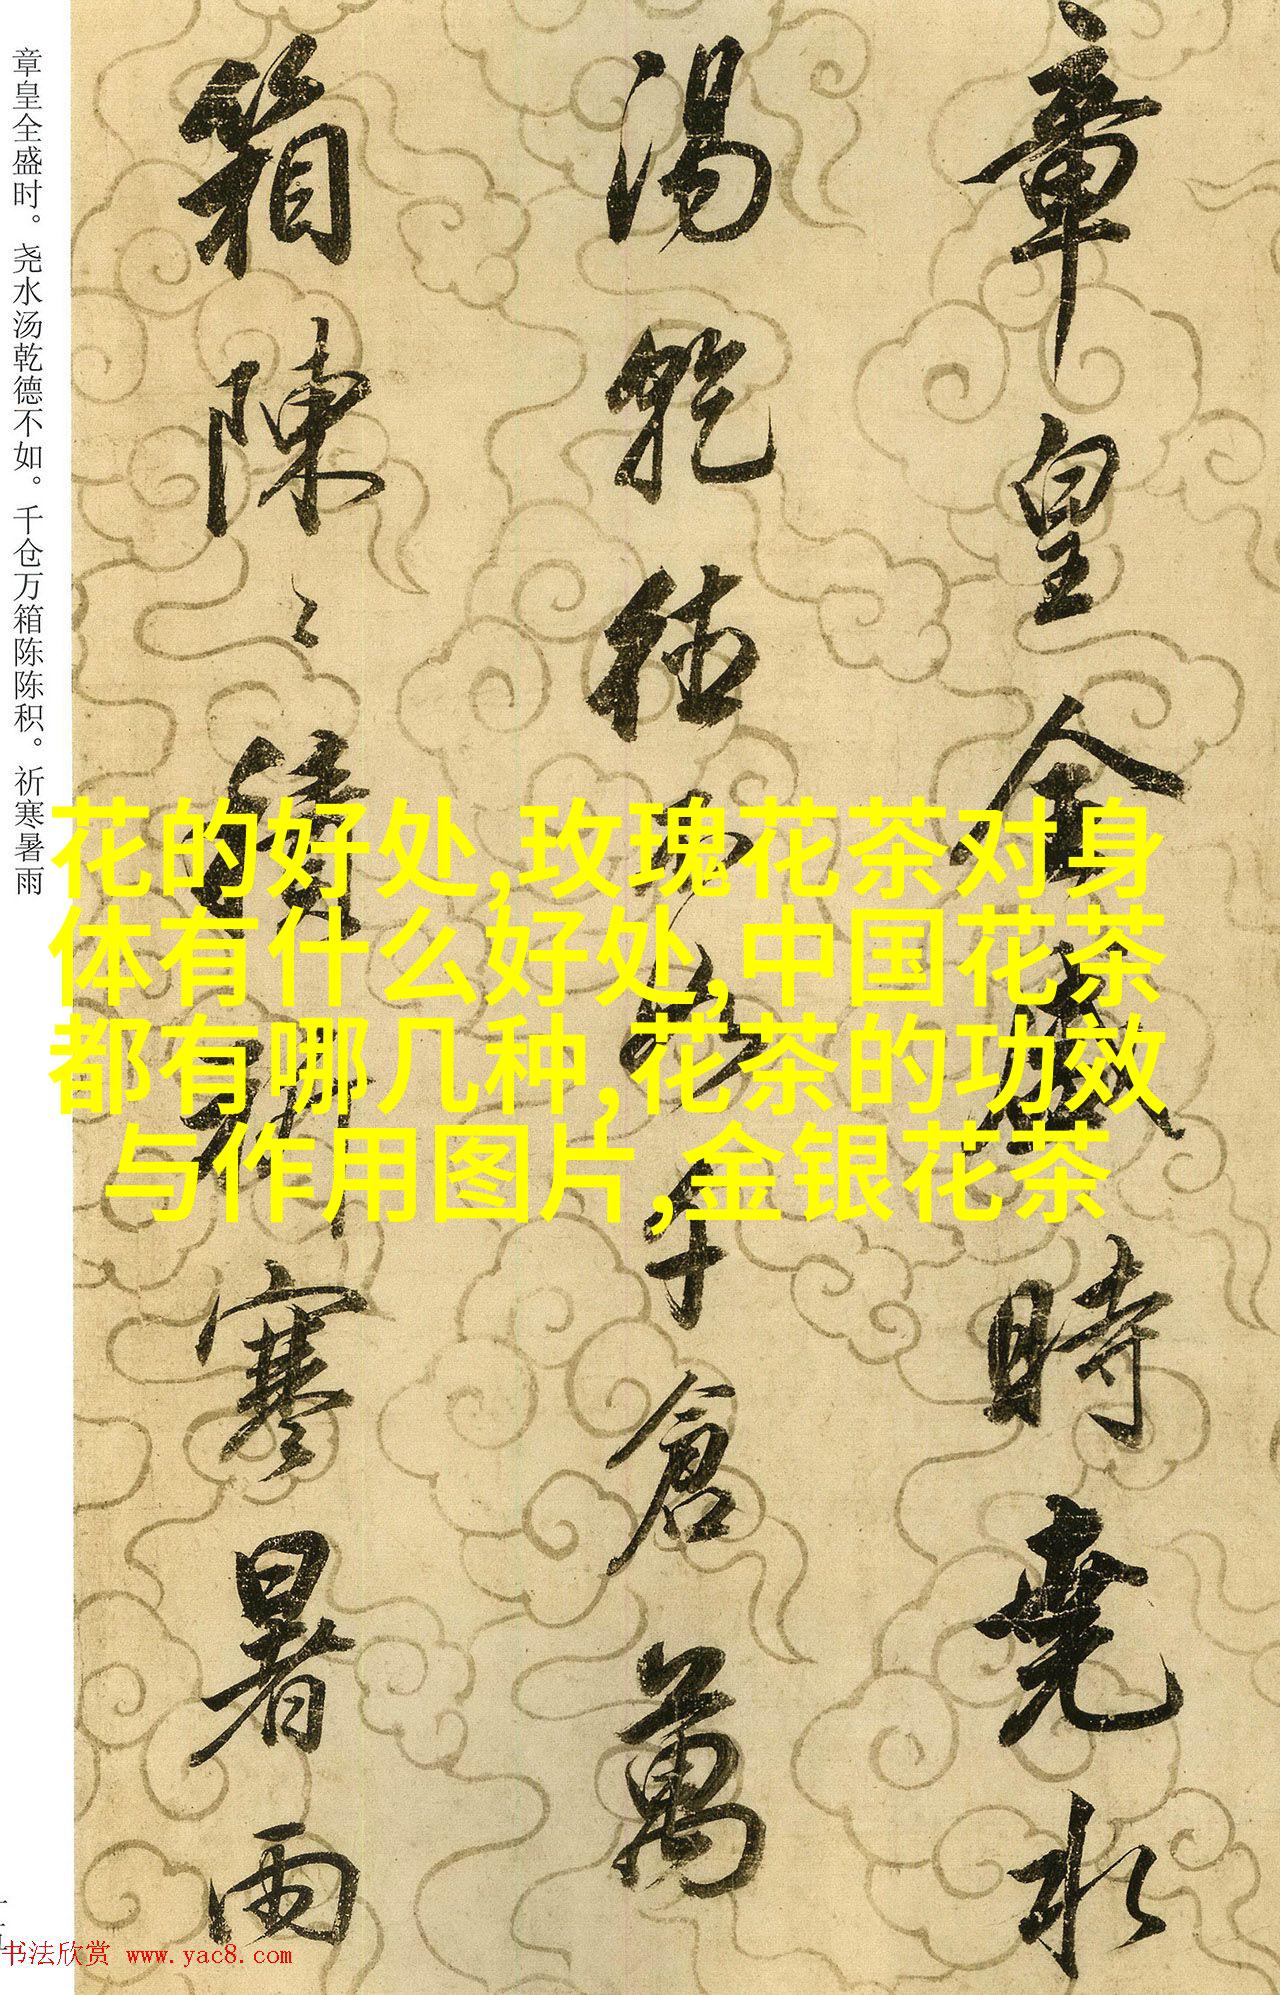 章皇全盛時堯水
湯乾德不如千倉萬
箱陳〻積祈寒暑雨
章皇全盛时。尧水汤乾德不如。千仓万箱陈陈积。祈寒暑雨
花的好处,玫瑰花茶对身
体有什么好处,中国花茶
都有哪几种,花茶的功效
与作用图片,金银花茶
书法欣赏 www.yac8.com